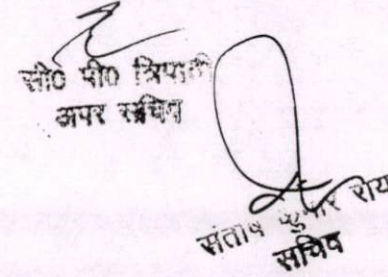 सी० पी० त्रिपाठी
अपर सचिव
संतोष कुमार राय
सचिव